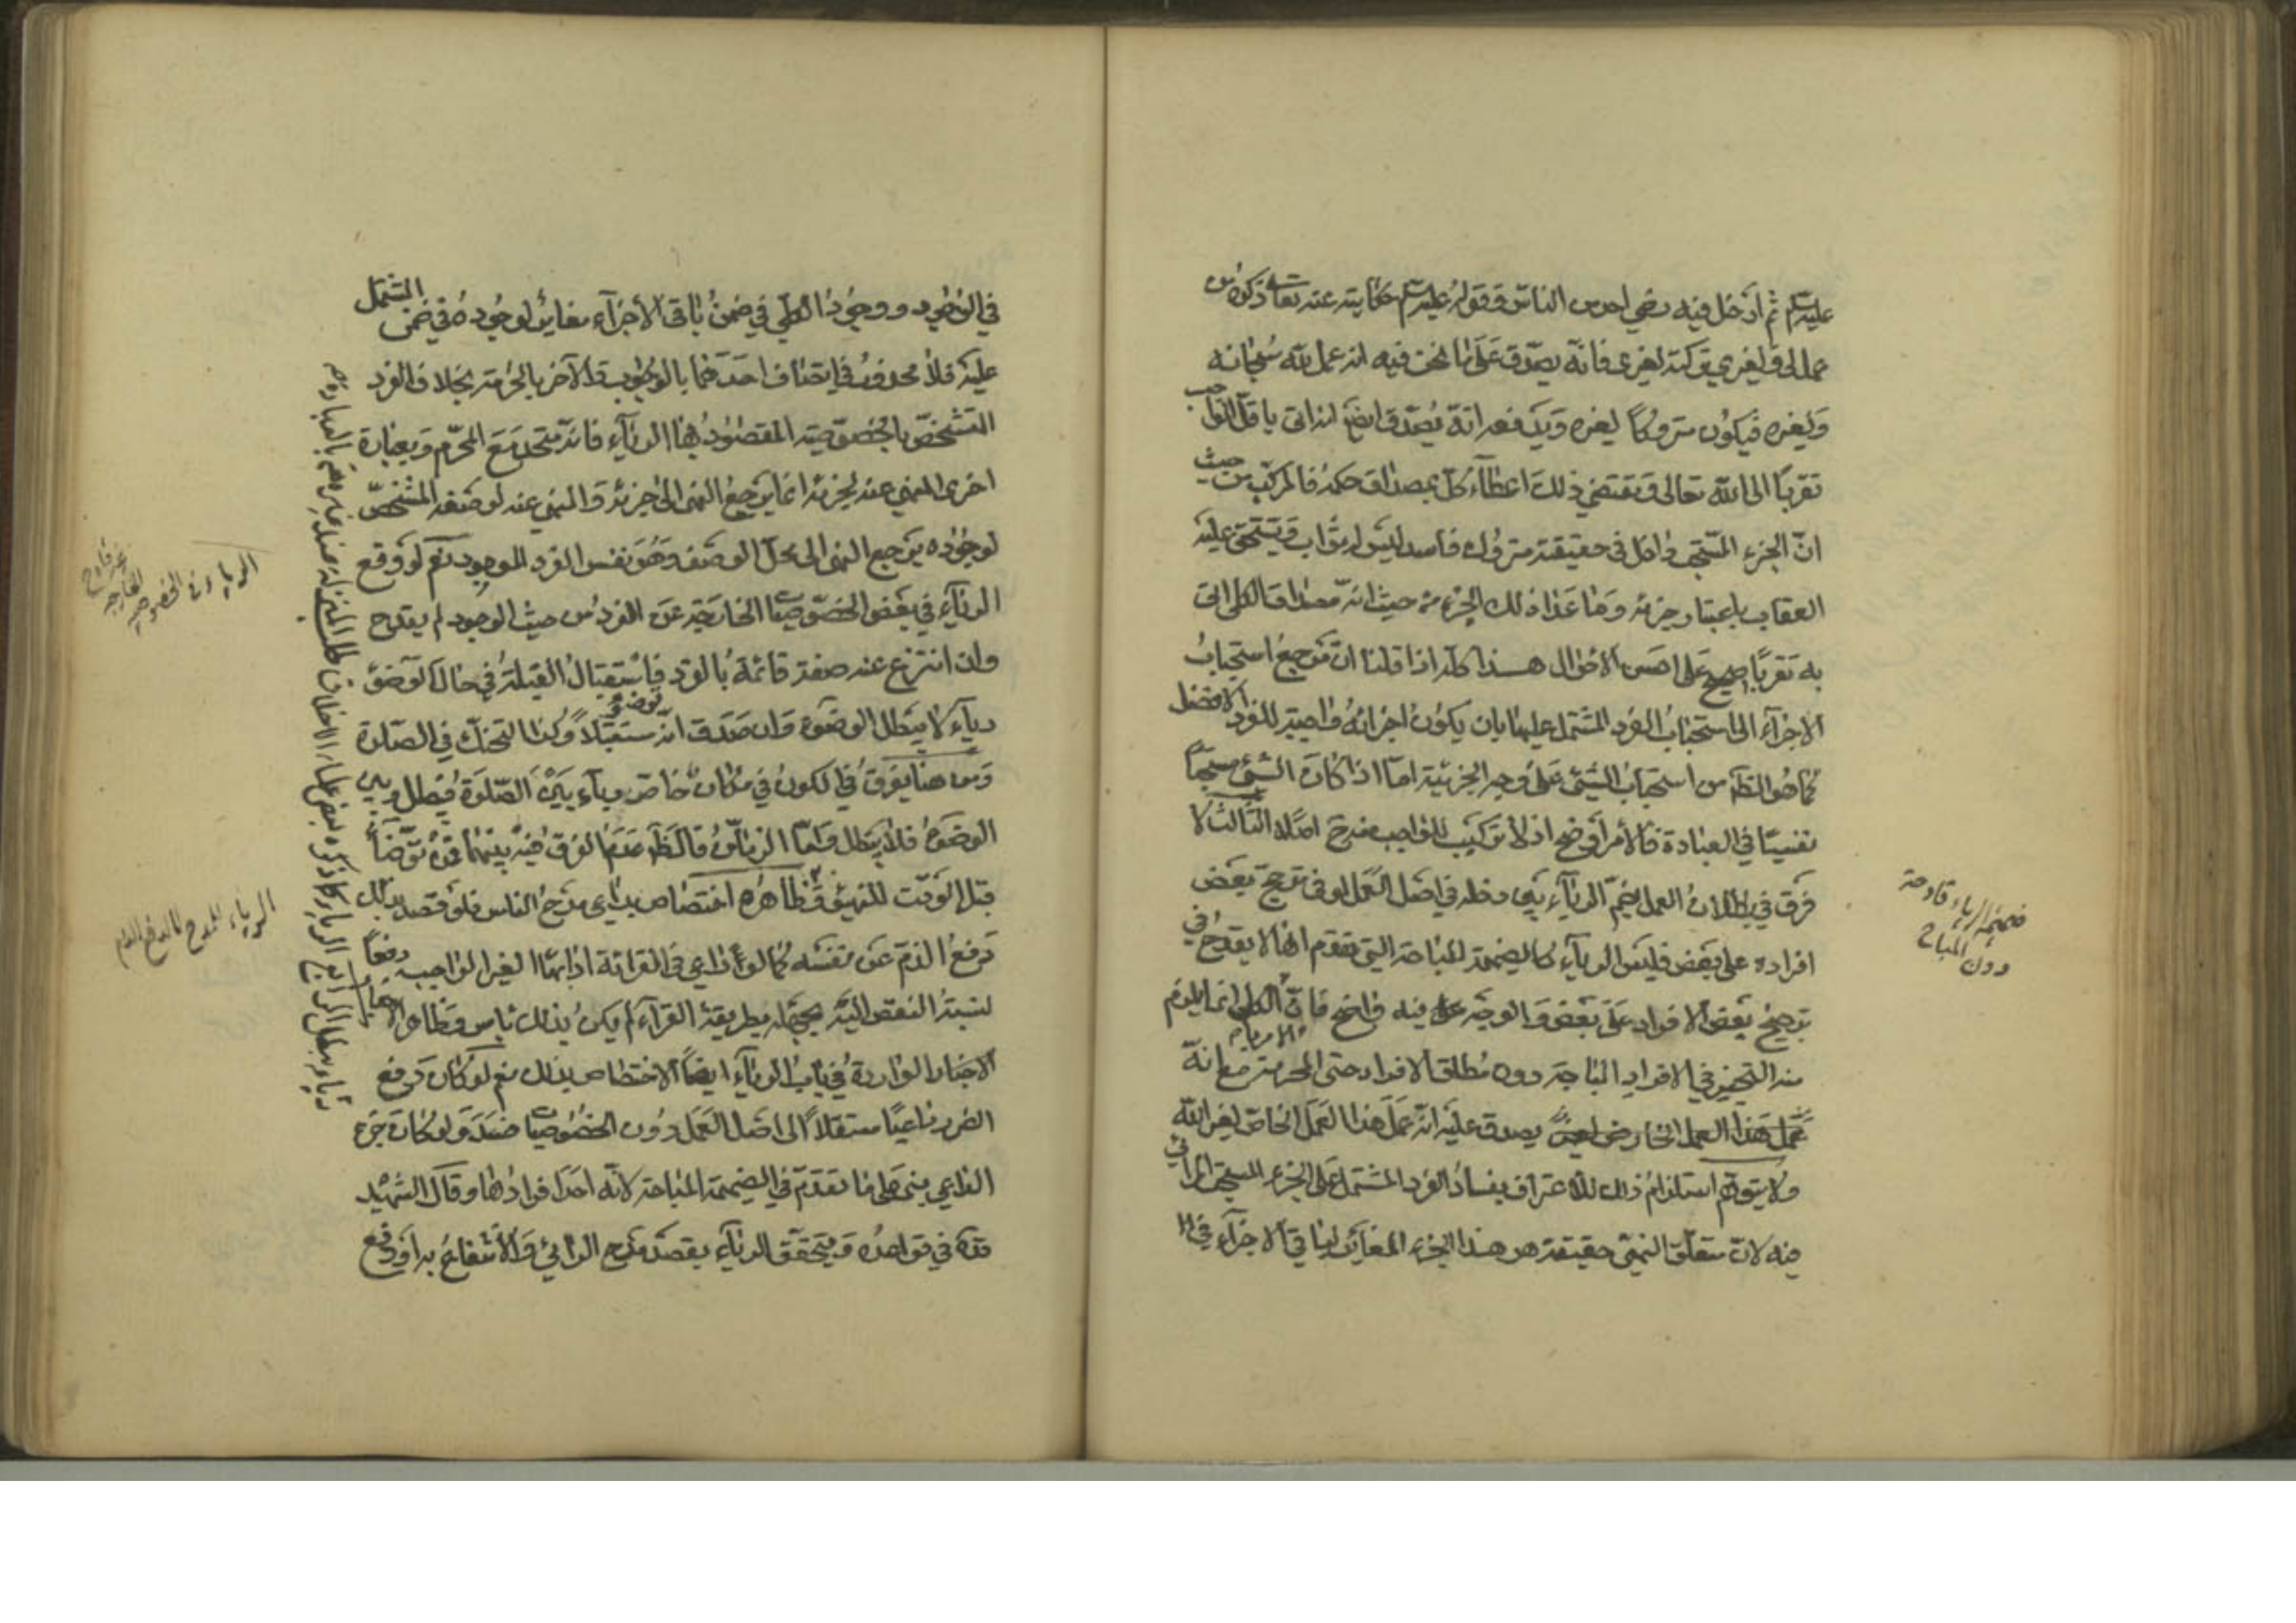 عليه السلام ثم ادخل فيه رضى احد من الناس وقوله عليه السلام حكاية عنه تعالى من
عمل لى ولغيري تركته لغيرى فانه يصدق على ما نحن فيه انه عمل لله سبحانه
ولغيره فيكون متروكا لغيره ويدفعه انه يصدق ايضا انه اتى باقل الواجب
تقربا الى الله تعالى ومقتضى ذلك اعطاء كل مصداق حكمه فالمركب من حيث
ان الجزء المستحب داخل في حقيقته متروك فاسد ليس له ثواب ويستحق عليه
العقاب باعتبار جزئه وما عدا ذلك الجزء من حيث انه مصداق الكلى اتى
به تقربا صحيح على احسن الاحوال هذا كله اذا قلنا ان مرجع استحباب
الاجزاء الى استحباب الفرد المشتمل عليها بان يكون اجزائه واجبة للفرد الافضل
كما هو الظاهر من استحباب الشئ على وجه الجزئية اما اذا كان الشئ مستحبا
نفسيا في العبادة فالامر اوضح اذ لا تركيب للواجب منه ح اصلا الثالث لا
فرق في بطلان العمل بضم الرياء بين دخله في اصل العمل او في ترجيح بعض
افراده على بعض فليس الرياء كالضميمة المباحة التى تقدم انها لا يقدح في
ترجيح بعض الافراد على بعض والوجه فيه واضح فان الكلى انما يلزم
منه التخيير في الافراد المباحة دون مطلق الافراد حتى المحرمة مع انه
عمل هذا العمل الخاص يصدق عليه انه عمل هذا العمل الخاص لغير الله
ولا يتوهم استلزام ذلك للاعتراف بفساد الفرد المشتمل على الجزء المستحب المرائي
فيه لان متعلق النهى حقيقة هو هذا الجزء المغاير لباقي الاجزاء في
ضميمة الرياء قادحة
دون المباح
في الوجود ووجود الكلي في ضمن باقى الاجزاء مغاير لوجوده في ضمن المشتمل
عليه فلا محذور في اتصاف احدهما بالوجوب والآخر بالحرمة بخلاف الفرد
المتشخص بالخصوصية المقصود بها الرياء فانه متحد مع المحرم وبعبارة
اخرى المنهي عنه لجزئه انما يرجع النهى الى جزئه والمنهى عنه لوصفه المشخص
لوجوده يرجع النهى الى محل الوصف وهو نفس الفرد الموجود نعم لو وقع
الرياء في بعض الخصوصيات الخارجة عن الفرد من حيث الوجود لم يقدح
وان انتزع عنه صفة قائمة بالفرد فاستقبال القبلة في حال الوضوء
رياء لا يبطل الوضوء وان صدق انه توضؤ مستقبلا وكذا التحنك في الصلوة
ومن هنا يفرق في الكون في مكان خاص رياء بين الصلوة فيبطل وبين
الوضوء فلا يبطل واما الزمان فالظاهر عدم الفرق فيه بينهما فمن توضأ
قبل الوقت للتهيؤ وظاهره اختصاص بدايى مدح الناس فلو قصد بذلك
دفع الذم عن نفسه كما لو في القرائة الغير الواجبة دفعا
لنسبة النقص اليه بجهله بطريقة القراء لم يكن بذلك باس وظاهر
الاخبار الواردة في باب الرياء ايضا الاختصاص بذلك نعم لو كان دفع
الضرر داعيا مستقلا الى اصل العمل دون الخصوصيات فسد ولو كان جزء
الداعي بنى على ما تقدم في الضميمة المباحة لانه احد افرادها وقال الشهيد
قده في قواعده ويتحقق الرياء بقصد مدح الرائي والانتفاع به او دفع
الرياء في الخصوصية
الخارجة
غير قادح
الرياء للمدح لا لدفع الذم